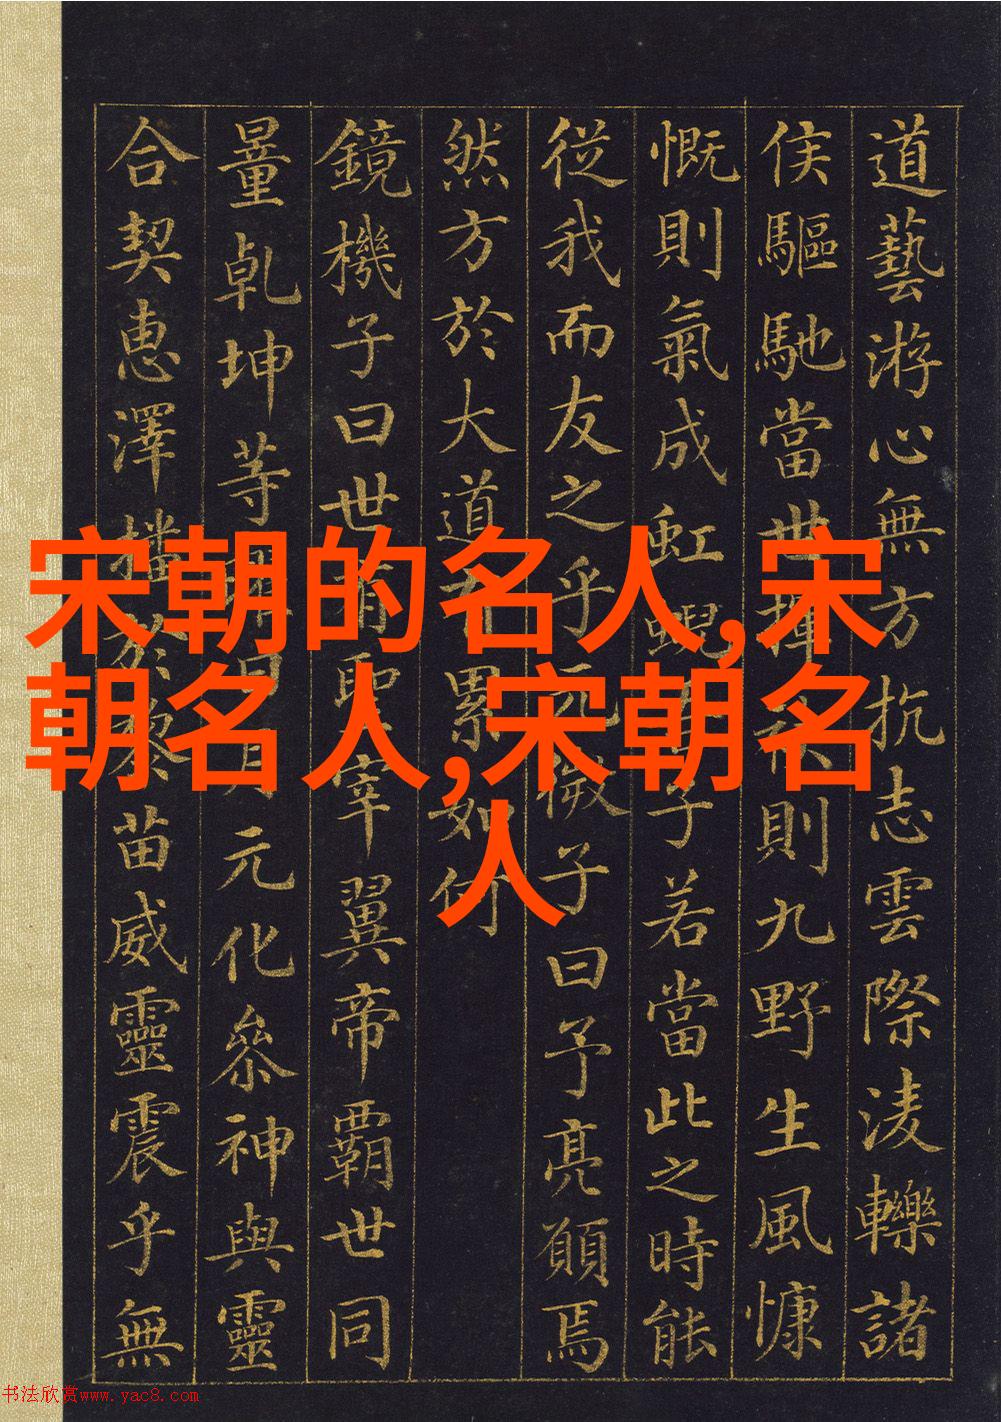 道藝游心無方抗志雲際淩轢諸
侯驅馳當世揮則九野生風慷
慨則氣成虹蜺子若當此之時能
從我而友之乎玄微子曰予亮願焉
然方於大道有累如何
鏡機子曰世有聖宰翼帝霸世同
量乾坤等曜日月元化叅神與靈
合契惠澤播於黎苗威靈震乎無
宋朝的名人,宋
朝名人,宋朝名
人
书法欣赏www.yac8.com